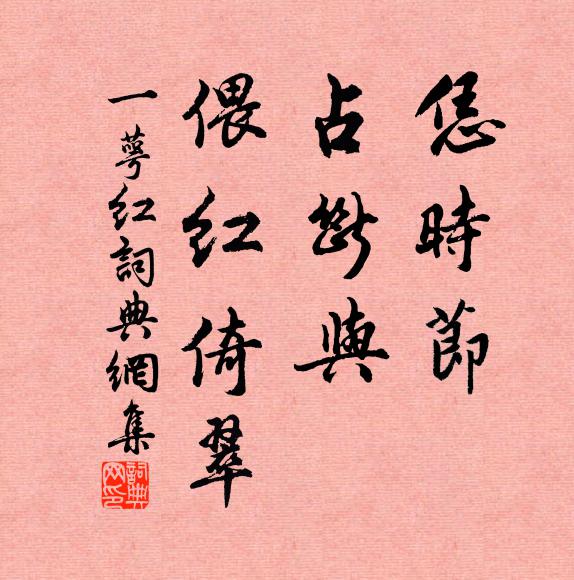 恁時節
占斷與
偎紅倚翠
一萼紅詞典網集
詞典网印